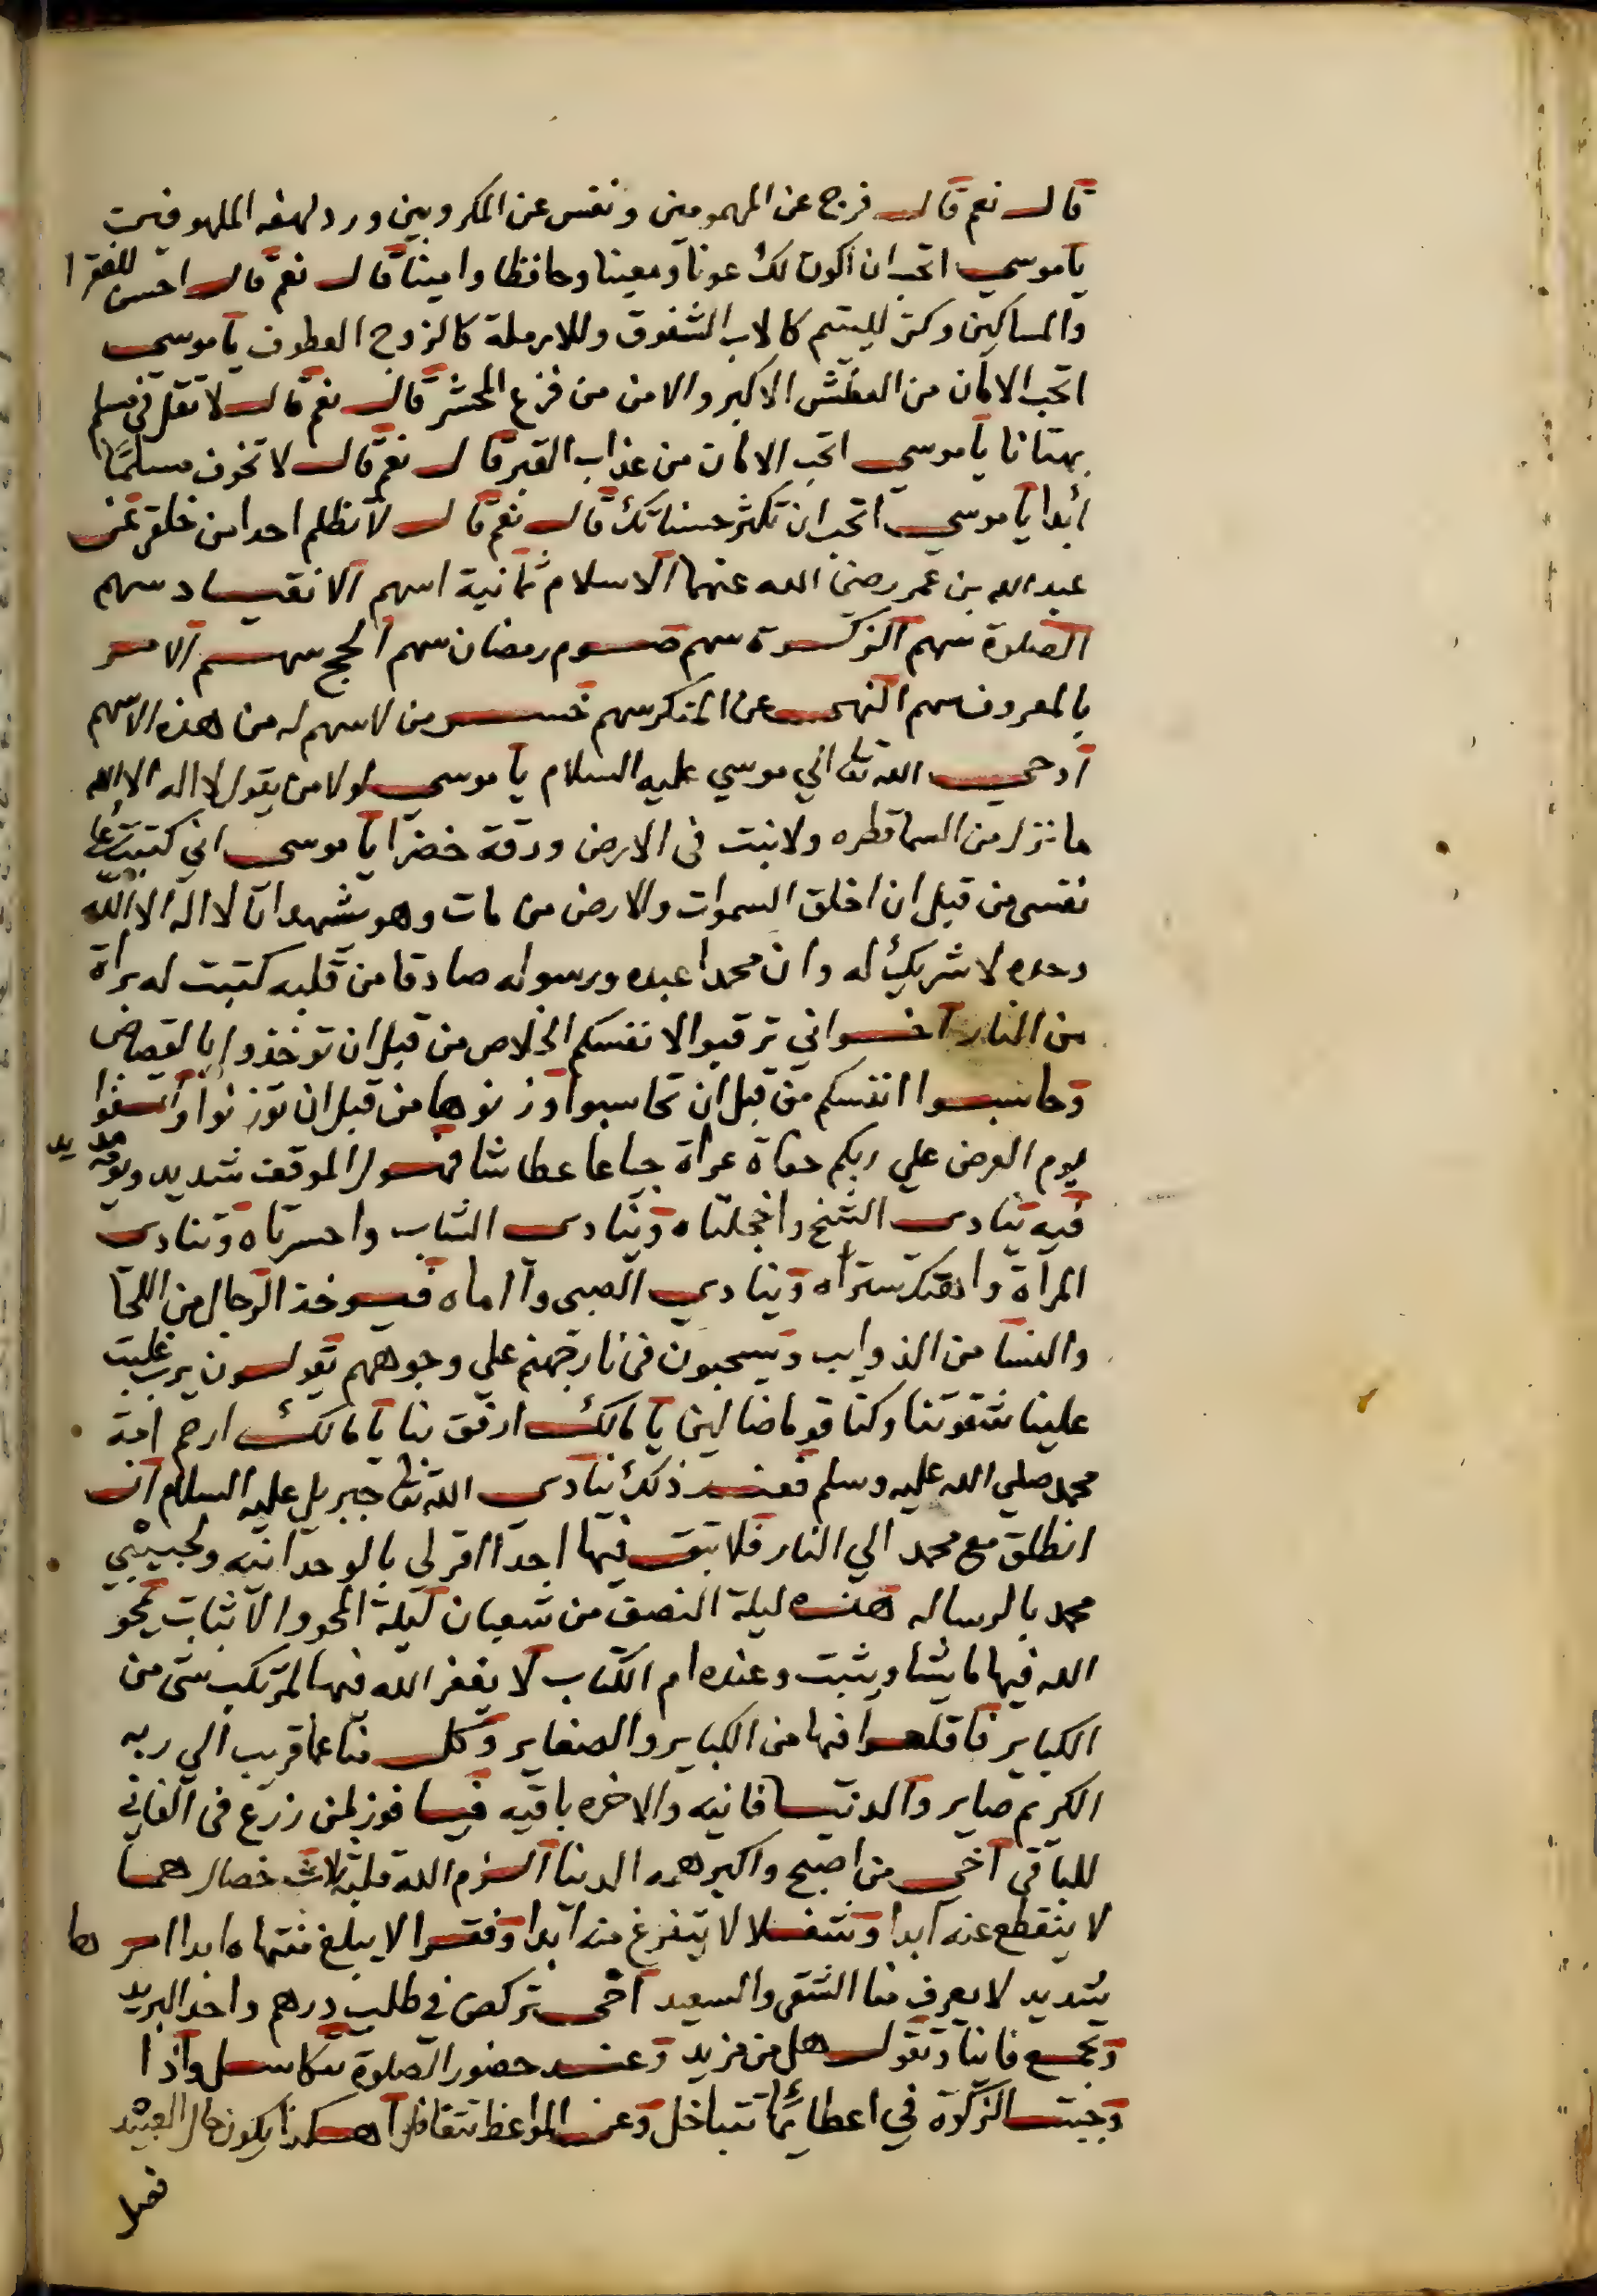 قال نعم قال فرج عن المهمومين ونفس عن المكروبين ورد لهفه الملهوفين
ياموسي اتحب ان اكون لك عونا ومعينا وحافظا وامينا قال نعم قال احسن للفقرا
والمساكين وكن لليتيم كالاب الشفوق وللارملة كالزوج العطوف ياموسي
اتحب الامان من العطش الاكبر والامن من فزع المحشر قال نعم قال لا تقل في مسلم
بهتانا ياموسي اتحب الامان من عذاب القبر قال نعم قال لا تخوف مسلما
ابدا ياموسي اتحب ان تكثر حسناتك قال نعم قال لا تظلم احدا من خلقي عن
عبد الله بن عمر رضي الله عنهما الاسلام ثمانية اسهم الانقياد سهم
الصلوة سهم الزكوة سهم صوم رمضان سهم الحج سهم الامر
بالمعروف سهم النهي عن المنكر سهم خسر من لا سهم له من هذه الاسهم
اوحي الله تعا الي موسي عليه السلام ياموسي لولا من يقول لا اله الا الله
ما نزل من السما قطره ولا نبت في الارض ورقة خضرا ياموسي اني كتبت علي
نفسي من قبل ان اخلق السموات والارض من مات وهو يشهد ان لا اله الا الله
وحده لا شريك له وان محمدا عبده ورسوله صادقا من قلبه كتبت له براة
من النار اخواني ترقبوا لانفسكم الخلاص من قبل ان توخذوا بالقصاص
وحاسبوا انفسكم من قبل ان تحاسبوا وزنوها من قبل ان توزنوا
يوم العرض علي ربكم حفاة عراة جياعا عطاشا فهول الموقف شديد
فيه ينادي الشيخ واخجلتاه وينادي الشاب واحسرتاه وتنادي
المرأة واهتك ستراه وينادي الصبي وا اماه فيوخذ الرجال من اللحا
والنسا من الذوايب ويسحبون في نار جهنم علي وجوههم يقولون يرب غلبت
علينا شقوتنا وكنا قوما ضالين يا مالك ارفق بنا يا مالك ارحم امة
محمد صلي الله عليه وسلم فعند ذلك ينادي الله تعا جبريل عليه السلام ان
انطلق مع محمد الي النار فلا تبق فيها احدا اقر لي بالوحدانيه ولحبيبي
محمد بالرساله هذه ليلة النصف من شعبان ليلة المحو والاثبات يمحو
الله فيها ما يشا ويثبت وعنده ام الكتاب لا يغفر الله فيها لمرتكب شي من
الكباير فاقلعوا فيها من الكباير والصغاير وكل منا عما قريب الي ربه
الكريم صاير والدنيا فانيه والاخره باقيه فيا فوز لمن زرع في الفاني
للباقي اخي من اصبح واكبر همه الدنيا الزم الله قلبه ثلاث خصال هما
لا ينقطع عنه ابدا وشغلا لا يتفرغ منه ابدا وفقرا لا يبلغ منتهاه ابدا امر ها
شديد لا يعرف منا الشقي والسعيد اخي تركض في طلب درهم واحد البريد
وتجمع فانيا وتقول هل من مزيد وعند حضور الصلوة تتكاسل واذا
وجبت الزكوة في اعطائها تتباخل وعن المواعظ تتغافل اهكذا يكون حال العبيد